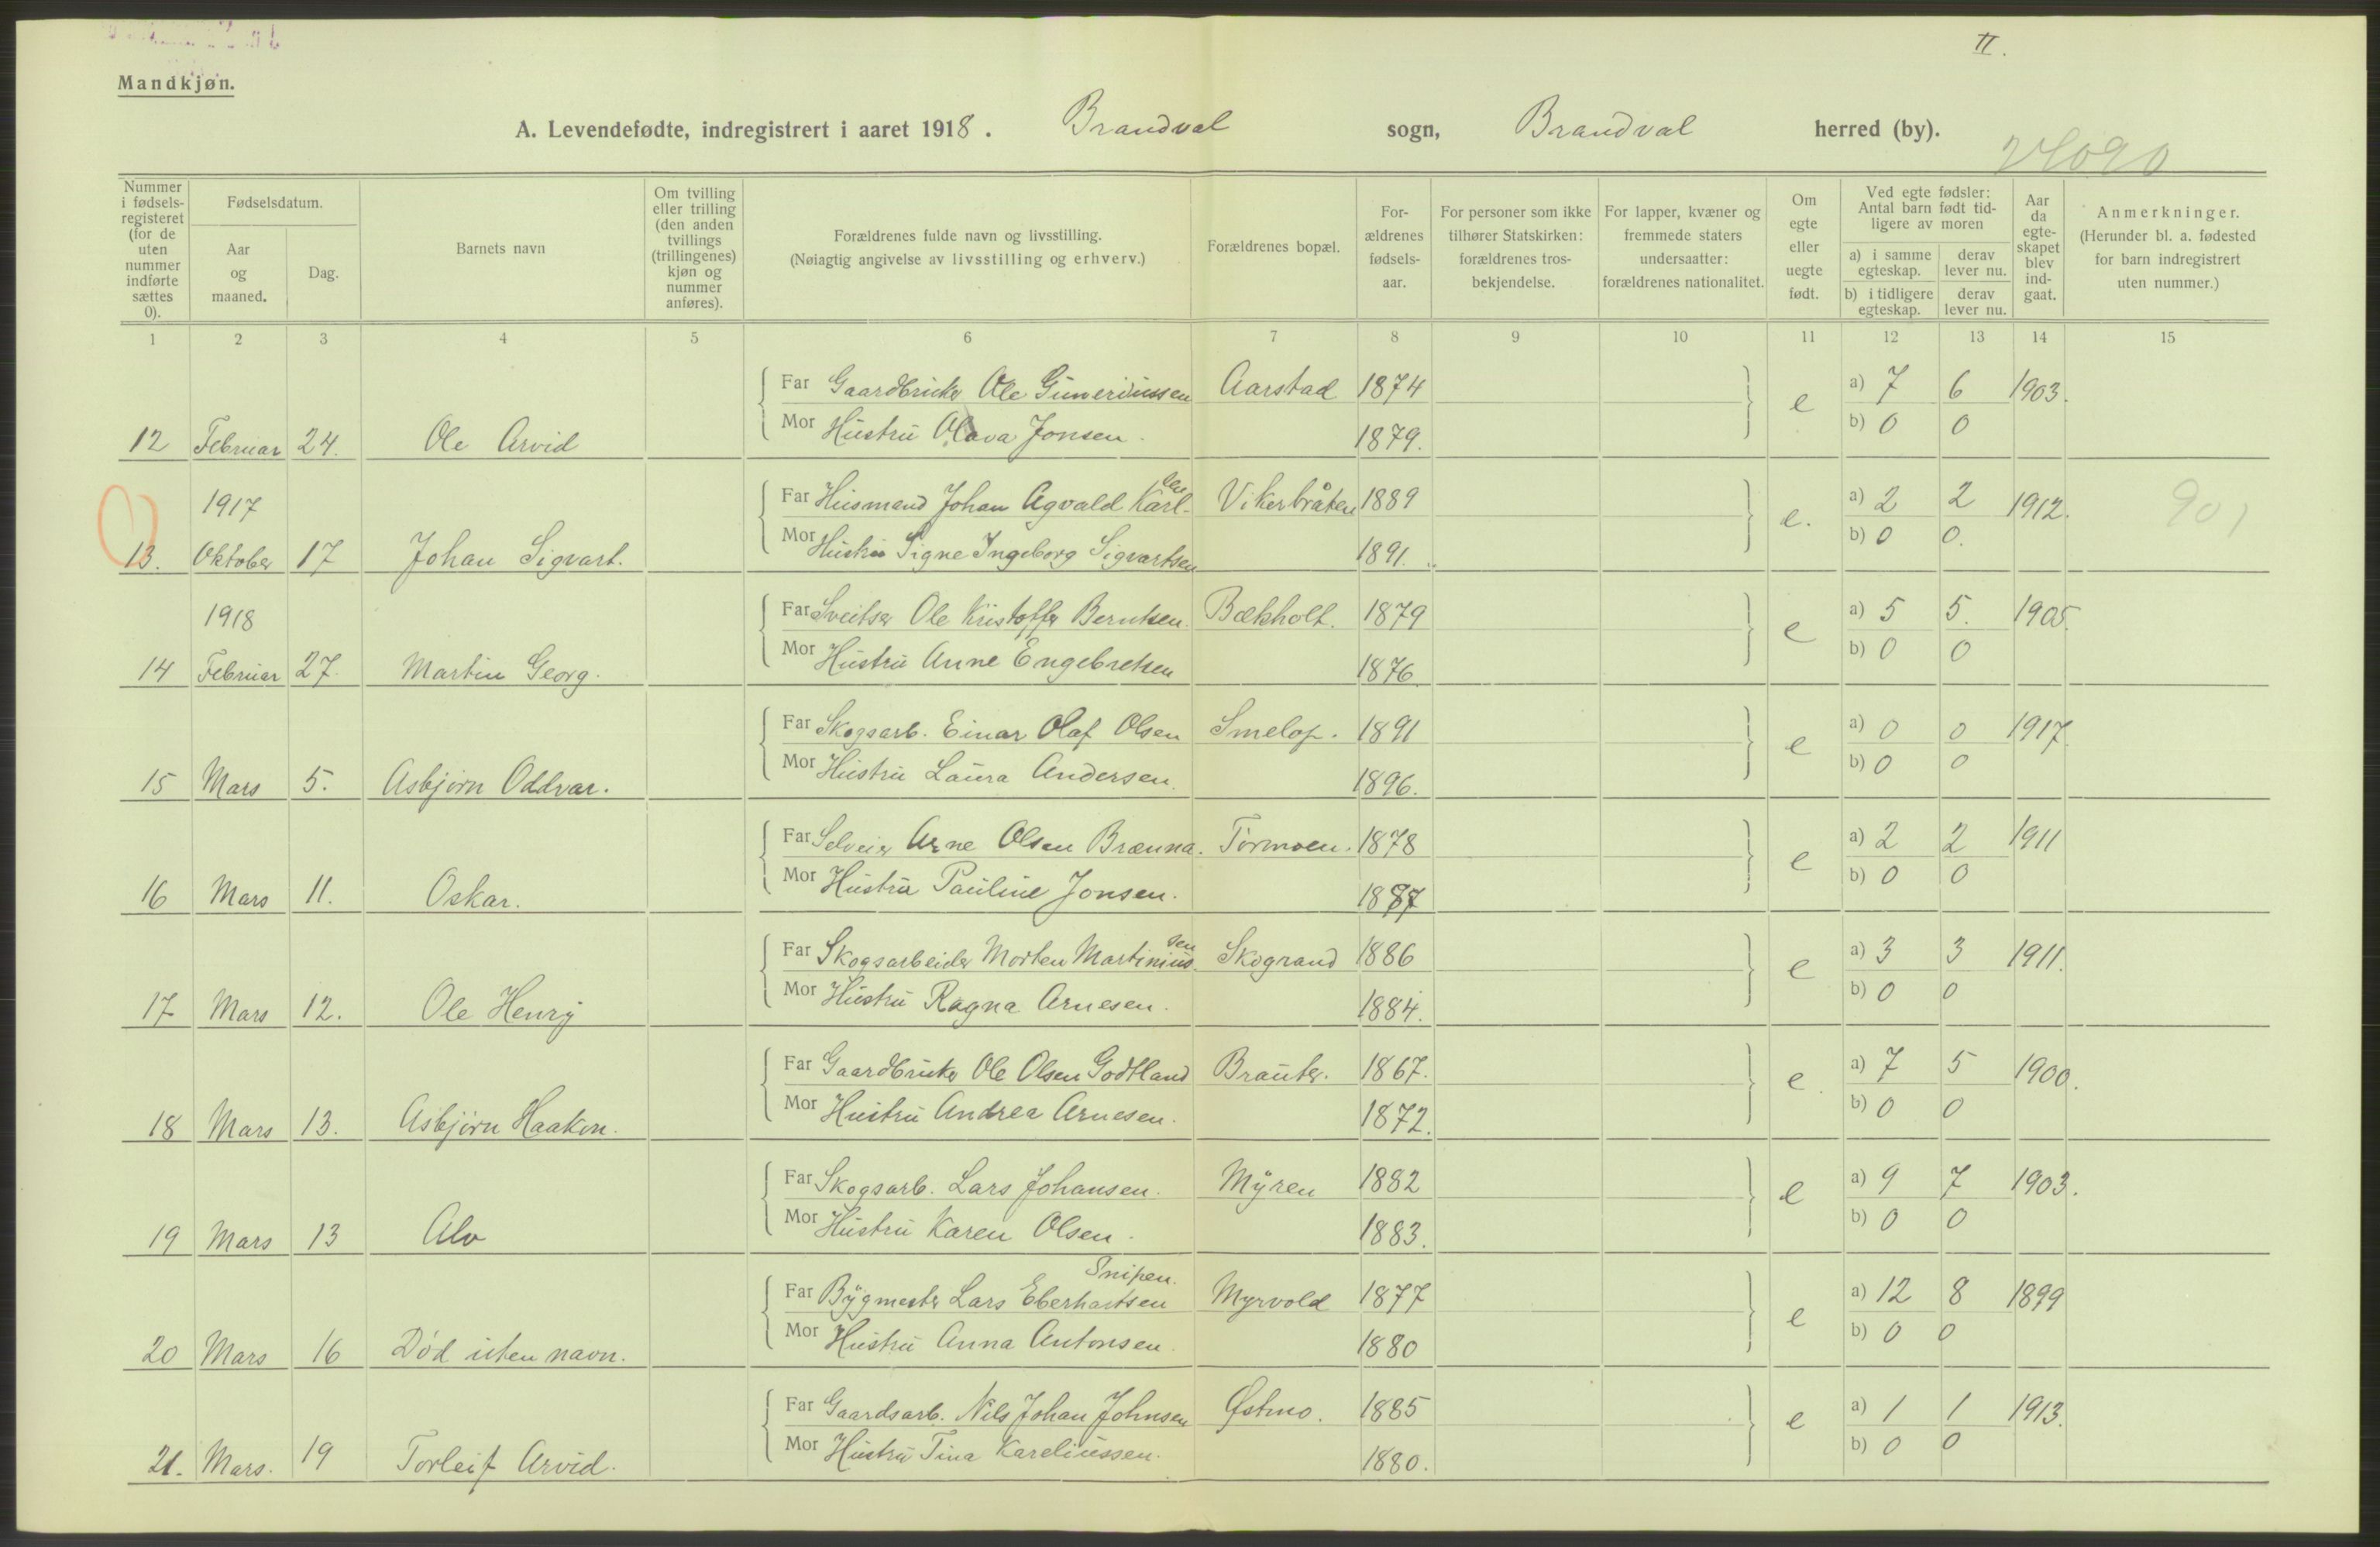 II.
Mandkjøn.
A. Levendefødte, indregistrert i aaret 1918. Brandval sogn, Brandval herred (by).
Nummer i fødsels-registeret (for de uten nummer indførte sættes 0).
Fødselsdatum.
Aar og maaned.
Dag.
Barnets navn
Om tvilling eller trilling (den anden tvillings (trillingenes) kjøn og nummer anføres).
Forældrenes fulde navn og livsstilling.
(Nøiagtig angivelse av livsstilling og erhverv.)
Forældrenes bopæl.
For-ældrenes fødsels-aar.
For personer som ikke tilhører Statskirken: forældrenes tros-bekjendelse.
For lapper, kvæner og fremmede staters undersaatter: forældrenes nationalitet.
Om egte eller uegte født.
Ved egte fødsler: Antal barn født tid-ligere av moren
a) i samme egteskap.
derav lever nu.
b) i tidligere egteskap.
derav lever nu.
Aar da egte-skapet blev ind-gaat.
Anmerkninger.
(Herunder bl. a. fødested for barn indregistrert uten nummer.)
1 2 3 4 5 6 7 8 9 10 11 12 13 14 15
Far Gaardbruker Ole Guneriussen Aarstad 1874 e a) 7 6 1903.
Mor Hustru Olava Jonsen. 1879. b) 0 0
12 Februar 24. Ole Arvid
1917 Far Husmand Johan Agvald Karl-sen Vikerbråten 1889 e. a) 2 2 1912. 901
Mor Hustru Signe Ingeborg Sigvartsen 1891. b) 0 0.
13. Oktober 17 Johan Sigvart.
1918 Far Sveitser Ole Kristoffer Berntsen. Bækholt. 1879 e a) 5 5. 1905.
Mor Hustru Anne Engebretsen 1876 b) 0 0
14 Februar 27. Martin Georg.
Far Skogsarb. Einar Olaf Olsen Smelop. 1891 e a) 0 0 1917.
Mor Hustru Laura Andersen. 1896. b) 0 0
15 Mars 5. Asbjørn Oddvar.
Far Selveier Arne Olsen Brænna. Tormoen. 1878 e a) 2 2 1911
Mor Hustru Pauline Jonsen. 1887 b) 0 0
16 Mars 11. Oskar.
Far Skogsarbeider Morten Martinius-sen Skogrand 1886 e a) 3 3 1911.
Mor Hustru Ragna Arnesen. 1884. b) 0 0
17 Mars 12. Ole Henry
Far Gaardbruker Ole Olsen Godtland Brauter. 1867. e a) 7 5 1900.
Mor Hustru Andrea Arnesen. 1872. b) 0 0
18 Mars 13. Asbjørn Haakon.
Far Skogsarb. Lars Johansen. Myren 1882 e a) 9 7 1903.
Mor Hustru Karen Olsen. 1883. b) 0 0
19 Mars 13 Alv
Snipen.
Far Bygmester Lars Eberhartsen Myrvold 1877 e a) 12 8 1899
Mor Hustru Anna Antonsen. 1880 b) 0 0
20 Mars 16 Død uten navn.
Far Gaardsarb. Nils Johan Johnsen Østmo. 1885 e a) 1 1 1913.
Mor Hustru Tina Kareliussen. 1880. b) 0 0
21. Mars. 19 Torleif Arvid.